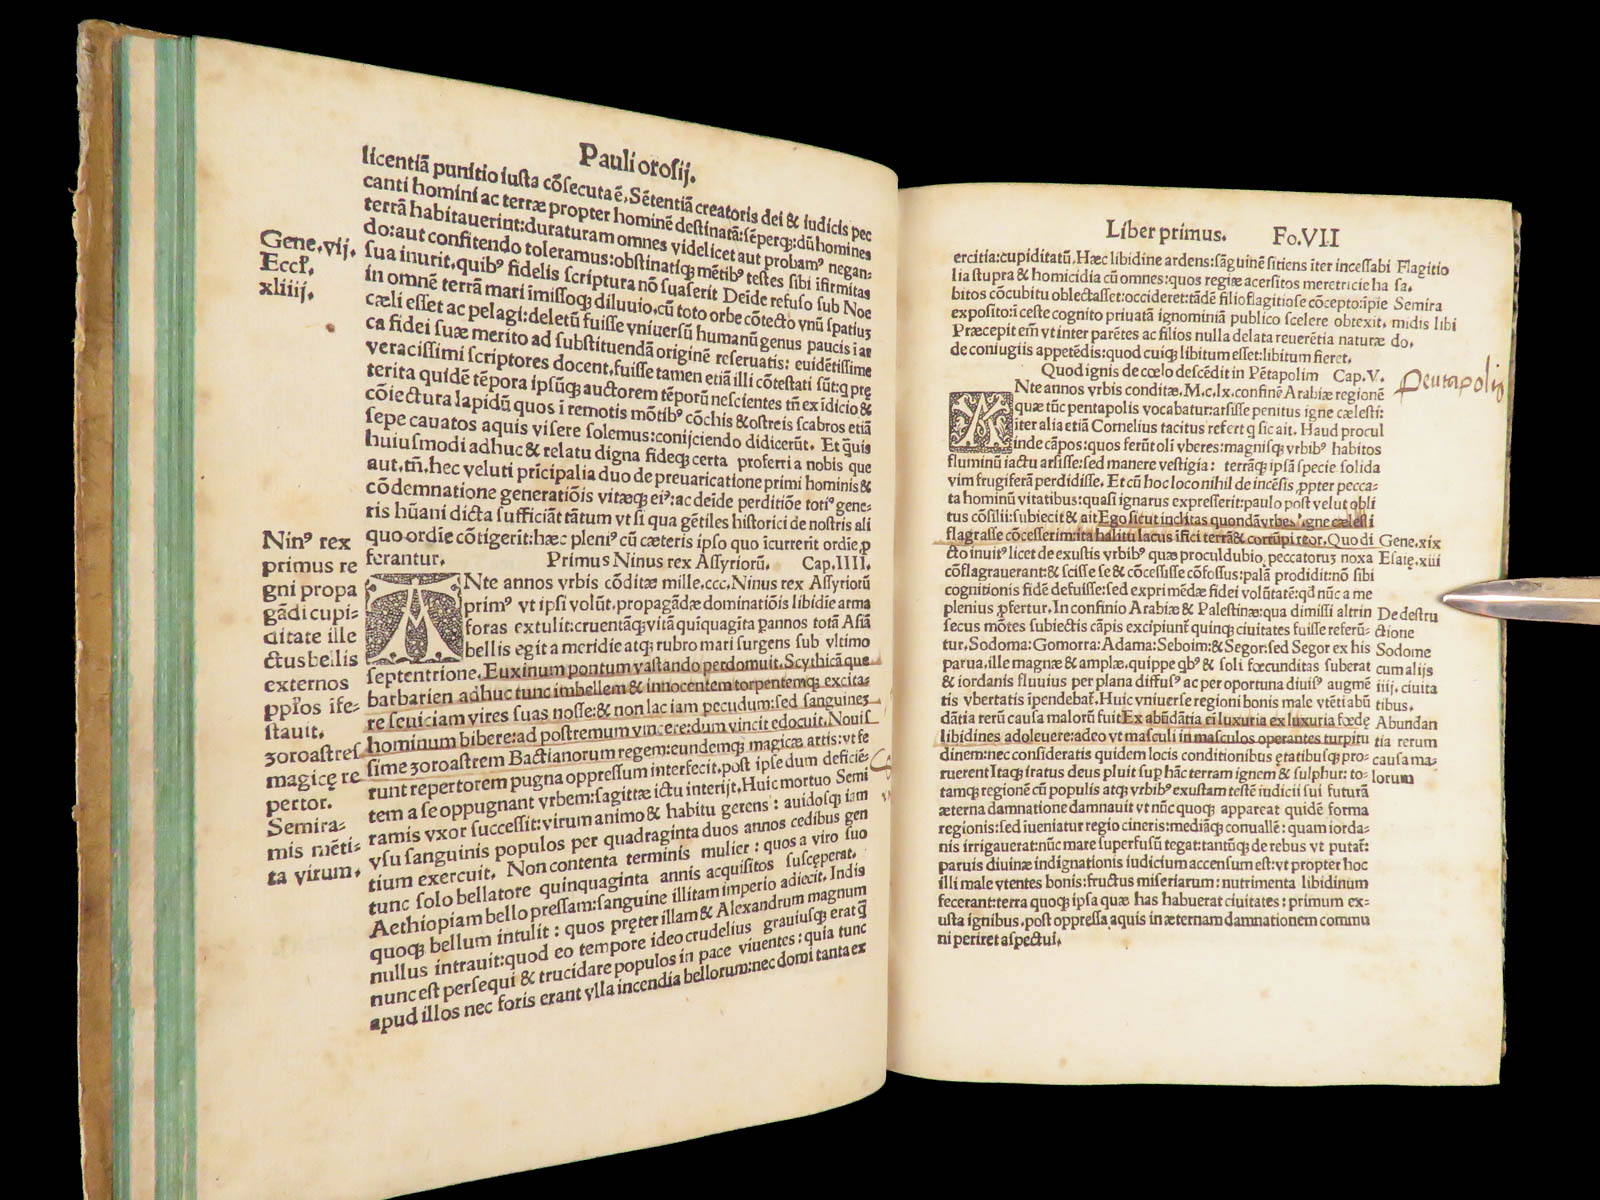 Pauli orosij.
licentiā punitio iusta cōsecuta ē. Sētentiā creatoris dei & iudicis pec
canti homini ac terræ propter hominē destinatā: sēperq; dū homines
terrā habitauerint: duraturam omnes videlicet aut probamꝰ negan=
do: aut confitendo toleramus: obstinatisq; mētibꝰ testes sibi ifirmitas
sua inurit, quibꝰ fidelis scriptura nō suaserit Deide refuso sub Noe
in omnē terrā mari īmissoq; diluuio, cū toto orbe cōtecto vnū spatiuꝫ
cæli esset ac pelagi: deletū fuisse vniuersū humanū genus paucis i ar
ca fidei suæ merito ad substituendā originē reseruatis: euidētissime
veracissimi scriptores docent, fuisse tamen etiā illi cōtestati sūt: q prę
terita quidē tēpora ipsūq; auctorem tēporū nescientes tn̄ ex idicio &
cōiectura lapidū quos ī remotis mōtibꝰ cōchis & ostreis scabros etiā
sepe cauatos aquis visere solemus: conijciendo didicerūt. Et q̄uis
huiusmodi adhuc & relatu digna fideq; certa proferri a nobis que
aut, tn̄, hec veluti prīcipalia duo de preuaricatione primi hominis &
cōdemnatione generatiōis vitæq; eiꝰ: ac deide perditiōe totiꝰ gene=
ris hūani dicta sufficiāt tātum vt si qua gētiles historici de nostris ali
quo ordie cōtigerit: hæc pleniꝰ cū cæteris ipso quo īcurrerit ordie, p
ferantur.
Gene. vij.
Eccl'.
xliiij.
Primus Ninus rex Assyriorū. Cap. IIII.
ANte annos vrbis cōditæ mille. ccc. Ninus rex Assyriorū
primꝰ vt ipsi volūt, propagādæ dominatiōis libidie arma
foras extulit: cruentāq; vitā quīquagīta p annos totā Asiā
bellis egit a meridie atq; rubro mari surgens sub vltimo
septentrione. Euxinum pontum vastando perdomuit. Scythicā que
barbarien adhuc tunc imbellem & innocentem torpentemq; excita=
re seuiciam vires suas nosse: & non lac iam pecudum: sed sanguineꝫ
hominum bibere: ad postremum vincere: dum vincit edocuit. Nouis
sime ꝫoroastrem Bactianorum regem: eundemq; magicæ artis: vt fe
runt repertorem pugna oppressum interfecit, post ipse dum deficiē=
tem a se oppugnant vrbem: sagittæ ictu interijt. Huic mortuo Semi
ramis vxor successit: virum animo & habitu gerens: auidosq; iam
vsu sanguinis populos per quadraginta duos annos cedibus gen
tium exercuit. Non contenta terminis mulier: quos a viro suo
tunc solo bellatore quinquaginta annis acquisitos susceperat.
Aethiopiam bello pressam: sanguine illitam imperio adiecit. Indis
quoq; bellum intulit: quos pręter illam & Alexandrum magnum
nullus intrauit: quod eo tempore ideo crudelius grauiusq; erat q̄
nunc est persequi & trucidare populos in pace viuentes: quia tunc
apud illos nec foris erant vlla incendia bellorum: nec domi tanta ex
Ninꝰ rex
primus re
gni propa
gādi cupi=
ditate ille
ctus bellis
externos
pplōs īfe=
stauit.
ꝫoroastres
magicę re
pertor.
Semira=
mis mēti=
ta virum.
Liber primus. Fo. VII
ercitia: cupiditatū. Hæc libidine ardens: sāguinē sitiens iter incessabi Flagitio
lia stupra & homicidia cū omnes: quos regiæ acersitos meretricie ha sa.
bitos cōcubitu oblectasset: occideret: tādē filio flagitiose cōcepto: īpie Semira
exposito: ī ceste cognito priuatā ignominiā publico scelere obtexit. midis libi
Præcepit em̄ vt inter parētes ac filios nulla delata reuerētia naturæ do.
de coniugiis appetēdis: quod cuiq; libitum esset: libitum fieret.
Quod ignis de cœlo descēdit in Pētapolim Cap. V.
Pentapolis
ANte annos vrbis conditæ. M. c. lx. confinē Arabiæ regionē
quæ tūc pentapolis vocabatur: arsisse penitus igne cælesti:
īter alia etiā Cornelius tacitus refert q sic ait. Haud procul
inde cāpos: quos ferūt oli vberes: magnisq; vrbibꝰ habitos
fluminū iactu arsisse: sed manere vestigia: terrāq; ipsā specie solida
vim frugiferā perdidisse. Et cū hoc loco nihil de incēsis ,ppter pecca=
ta hominū vitatibus: quasi ignarus expresserit: paulo post velut obli
tus cōsilii: subiecit & ait Ego sicut inclitas quondā vrbes igne cælesti
flagrasse cōcesserim: ita halitu lacus ifici terrā & corrūpi reor. Quo di
cto inuitꝰ licet de exustis vrbibꝰ quæ procul dubio, peccatoruꝫ noxa
cōflagrauerant: & scisse se & cōcessisse cōfossus: palā prodidit: nō sibi
cognitionis fidē defuisse: sed exprimēdæ fidei volūtatē: qd nūc a me
plenius pfertur. In confinio Arabiæ & Palestinæ: qua dimissi altrin
secus mōtes subiectis cāpis excipiunt quinq; ciuitates fuisse referū=
tur. Sodoma: Gomorra: Adama: Seboim: & Segor: sed Segor ex his
parua, ille magnæ & amplæ, quippe qbꝰ & soli fœcunditas suberat
& iordanis fluuius per plana diffusꝰ ac per oportuna diuisꝰ augmē
tis vbertatis īpendebat. Huic vniuerse regioni bonis male vtēti abū
dātia rerū causa malorū fuit Ex abūdātia ei luxuria ex luxuria fœdę
libidines adoleuere: adeo vt masculi in masculos operantes turpitu
dinem: nec consideratis quidem locis conditionibus ętatibusq; pro=
ruerent Itaq; iratus deus pluit sup hāc terram ignem & sulphur: to=
tamq; regionē cū populis atq; vrbibꝰ exustam testē iudicii sui futurā
æterna damnatione damnauit vt nūc quoq; appareat quidē forma
regionis: sed iueniatur regio cineris: mediāq; conuallē: quam iorda=
nis irrigauerat: nūc mare superfusū tegat: tantūq; de rebus vt putat:
paruis diuinæ indignationis iudicium accensum est: vt propter hoc
illi male vtentes bonis: fructus miseriarum: nutrimenta libidinum
fecerant: terra quoq; ipsa quæ has habuerat ciuitates: primum ex=
usta ignibus, post oppressa aquis in æternam damnationem commu
ni periret aspectui.
Gene. xix
Esaię. xiii
De destru
ctione
Sodome
cum alijs
iiij. ciuita
tibus.
Abundan
tia rerum
causa ma=
lorum